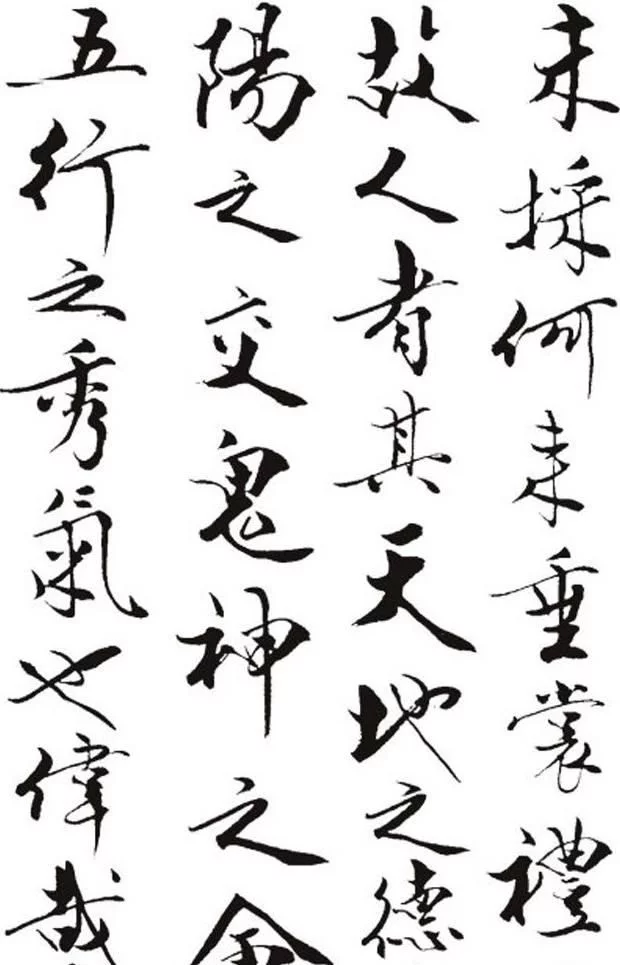 未採何来垂裳禮
故人者其天地之德
陽之交鬼神之
五行之秀氣也偉哉